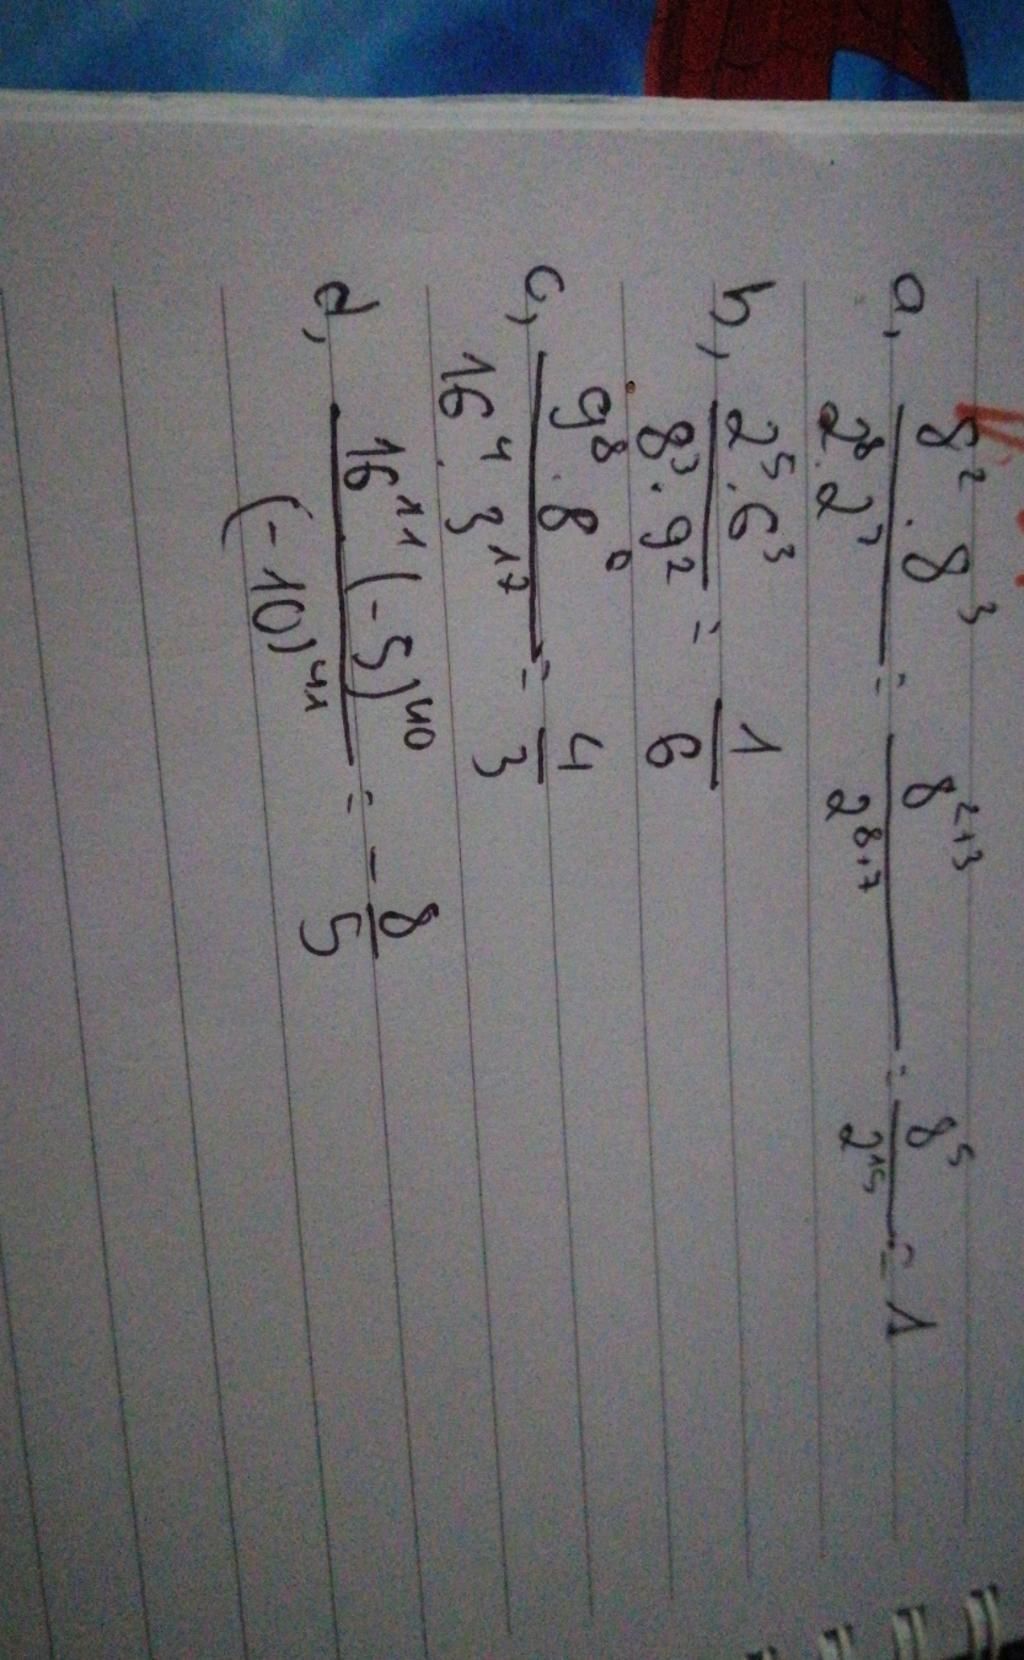 a, 8² . 8³ / 2⁸ . 2⁷ = 8²⁺³ / 2⁸⁺⁷ = 8⁵ / 2¹⁵ = 1
b, 2⁵ . 6³ / 8³ . 9² = 1 / 6
c, 9⁸ . 8⁶ / 16⁴ . 3¹⁷ = 4 / 3
d, 16¹¹ (-5)⁴⁰ / (-10)⁴¹ = - 8 / 5